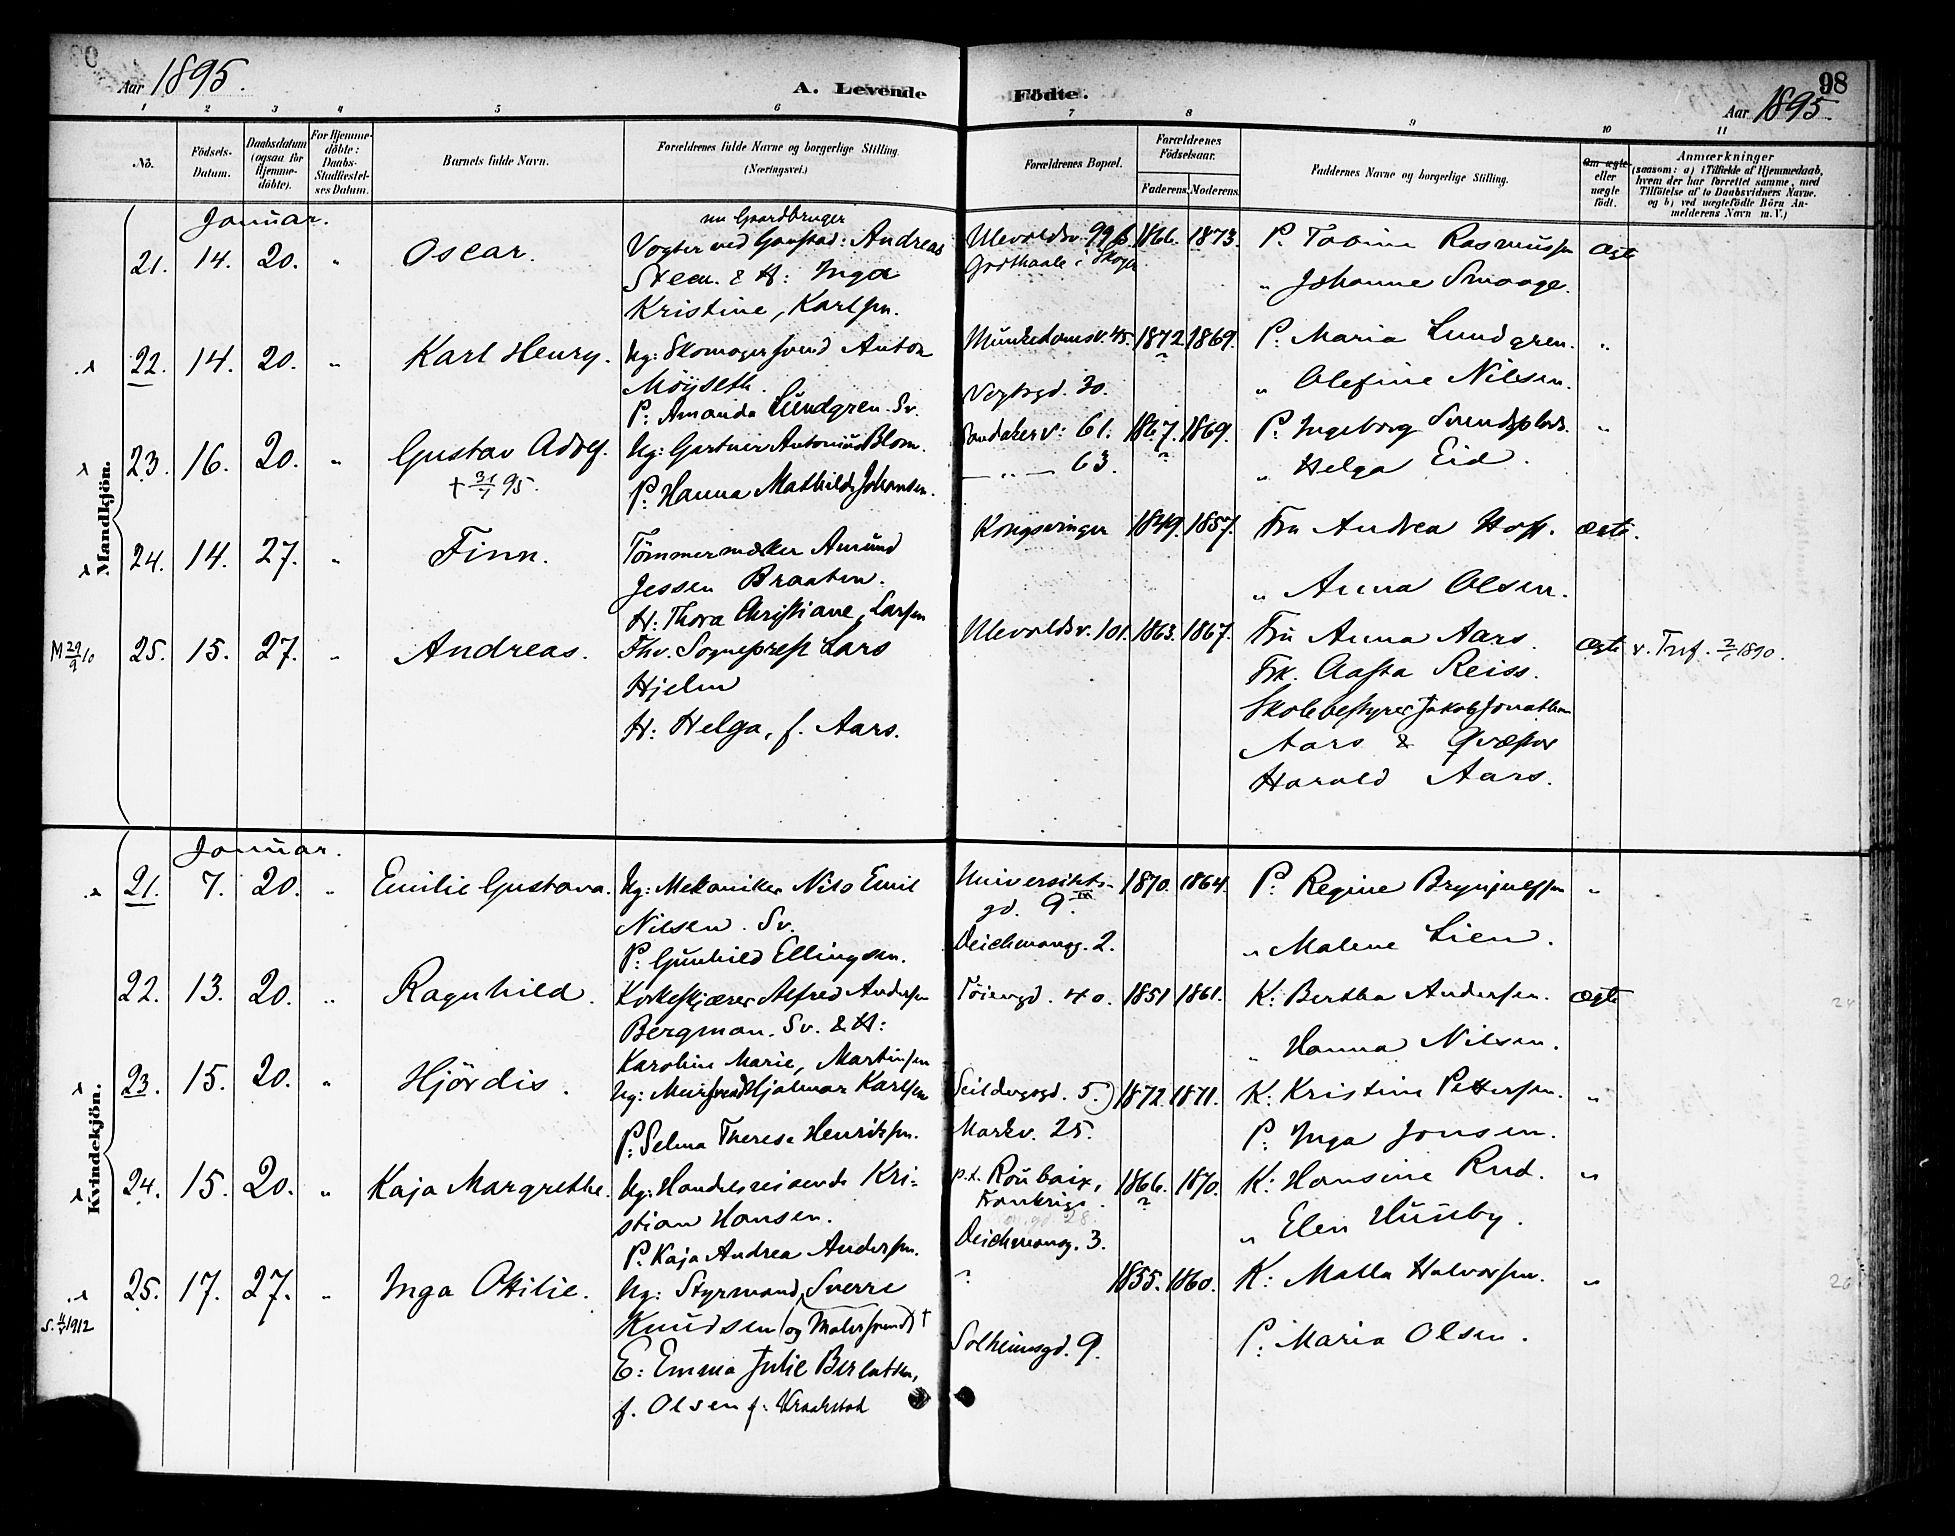 Aar 1895.
A. Levende Födte.
98
Aar 1895
1 2 3 4 5 6 7 8 9 10 11
No. Födsels-Datum. Daabsdatum (ogsaa for Hjemme-döbte). For Hjemme-döbte: Daabs-Stadfæstel-ses Datum. Barnets fulde Navn. Forældrenes fulde Navne og borgerlige Stilling. (Næringsvei.) Forældrenes Bopæl. Forældrenes Födselsaar. Faderens. Moderens. Faddernes Navne og borgerlige Stilling. Om ægte eller uægte födt. Anmærkninger (saasom: a) i Tilfælde af Hjemmedaab, hvem der har forrettet samme, med Tilföielse af to Daabsvidners Navne. og b) ved uægtefödte Börn An-melderens Navn m. V.)
Mandkjön.
Januar.
nu Gaardbruger
21. 14. 20. " Oscar. Vogter ved Gaustad: Andreas Ulevoldsv. 99b. 1866. 1873. P. Tobine Rasmussen ægte
Steen. & H: Inga Godthaab i Skoger " Johanne Smaage.
Kristine, Karlsen.
22. 14. 20. " Karl Henry. Ug: Skomagersvend Anton Munkedamsv. 45. 1872 1869. P. Maria Lundgren. "
Möyseth. " Olefine Nilsen.
P: Amanda Lundgren. Sv. Vogtsgd. 30.
23. 16. 20. " Gustav Adolf. Ug: Gartner Antonius Blom. Sandakerv: 61. 1867. 1869. P. Ingeborg "
† 31/1 95. P. Hanna Mathilde Johansen. — " — 63. " Helga Eid.
24. 14. 27. " Finn. Tömmermærker Amund Kongsvinger 1849. 1857. Fru Andrea Hoff. ægte.
Jessen Braaten. " Anna Olsen.
H: Thora Christiane, Larsen
M 29/9 10 25. 15. 27. " Andreas. Fhv. Sogneprest Lars Ulevoldsv. 101. 1863. 1867. Fru Anna Aars. ægte v. 1890.
Hjelm Frk. Aasta Reiss.
H: Helga, f. Aars. Skolebestyrer Jakob Jonathan
Aars &
Harald Aars.
Kvindekjön.
Januar.
21. 7. 20. " Emilie Gustava. Ug: Mekaniker Nils Emil Universitets- 1870. 1864. P: Regine Brynjulfsen "
Nilsen. Sv. gd. 9. IV " Malene Lien.
P: Gunhild Ellingsen. Deichmansg. 2.
22. 13. 20. " Ragnhild. Korkeskjærer Alfred Andersen Töiengd. 40. 1851 1861. K: Bertha Andersen. ægte
Bergman. Sv. & H: " Hanna Nilsen.
Karoline Marie, Martinsen
23. 15. 20. " Hjördis. Ug: Mursvend Hjalmar Karlsen Seildugsgd. 5. 1872. 1871. K: Kristine Pettersen. "
P. Selma Therese Henriksen. Markv. 25. P: Inga Jonsen.
24. 15. 20. " Kaja Margrethe. Ug: Handelsreisende Kri- p.t. Roubaix, 1866. 1870. K: Hansine Rud. "
stian Hansen. Frankrige. " Elen Huseby.
P. Kaja Andrea Andersen. Deichmansg. 3.
25. 17. 27. " Inga Otilie. Ug: Styrmand, Sverre ? 1855. 1860. K: Malla Halvorsen. "
1912 Knudsen (og Malersvend) † P: Maria Olsen.
E: Emma Julie Berlatsen, Solheimsgd. 9.
f. Olsen f: Kraakstad